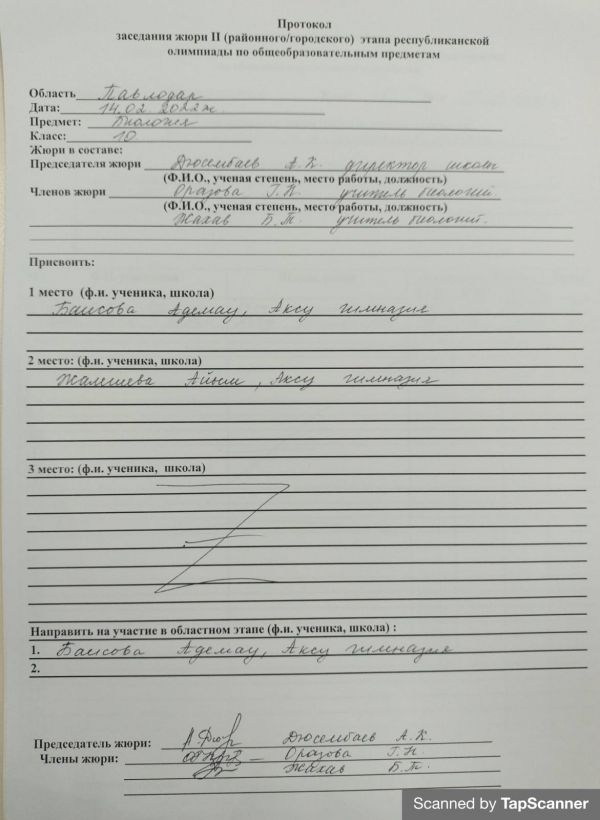 Протокол
заседания жюри II (районного/городского) этапа республиканской
олимпиады по общеобразовательным предметам
Область Павлодар
Дата: 14.02.2022ж
Предмет: Биология
Класс: 10
Жюри в составе:
Председателя жюри Дюсембаев А.К. директор школы
(Ф.И.О., ученая степень, место работы, должность)
Членов жюри Оразова Г.Н. учитель биологий
(Ф.И.О., ученая степень, место работы, должность)
Жахав Б.Т. учитель биологий.
Присвоить:
1 место (ф.и. ученика, школа)
Баисова Адемау, Аксу гимназия
2 место: (ф.и. ученика, школа)
Жамшева Айым, Аксу гимназия
3 место: (ф.и. ученика, школа)
Направить на участие в областном этапе (ф.и. ученика, школа) :
1. Баисова Адемау, Аксу гимназия
2.
Председатель жюри: Дюсембаев А.К.
Члены жюри: Оразова Г.Н.
Жахав Б.Т.
Scanned by TapScanner